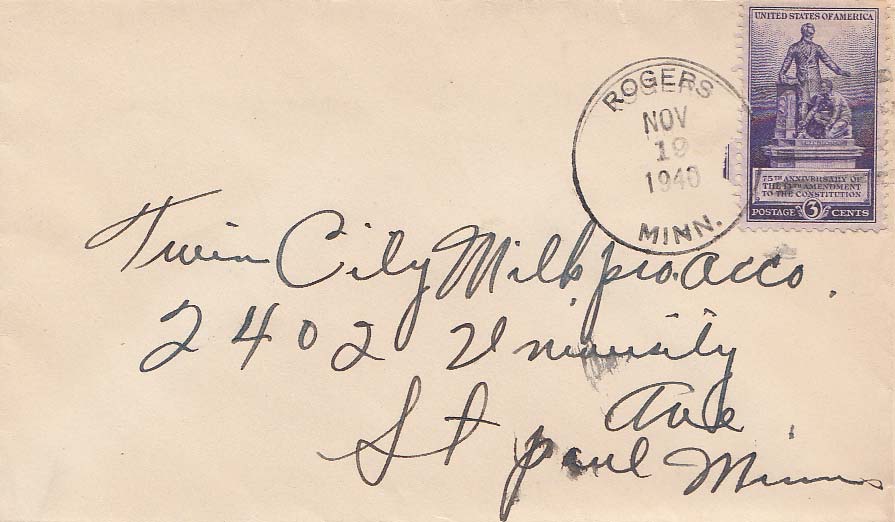 UNITED STATES OF AMERICA
ROGERS
NOV
19
1940
MINN.
75TH ANNIVERSARY OF
THE 13TH AMENDMENT
TO THE CONSTITUTION
POSTAGE 3 CENTS
Twin City Milk pro. Acco.
2402 University
Ave
St paul Minn